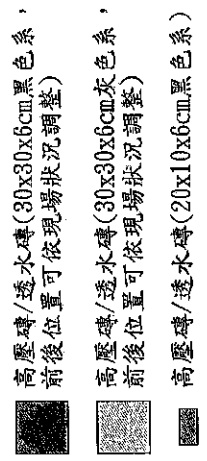 高壓磚/透水磚(30x30x6cm黑色系，
前後位置可依現場狀況調整)
高壓磚/透水磚(30x30x6cm灰色系，
前後位置可依現場狀況調整)
高壓磚/透水磚(20x10x6cm黑色系)